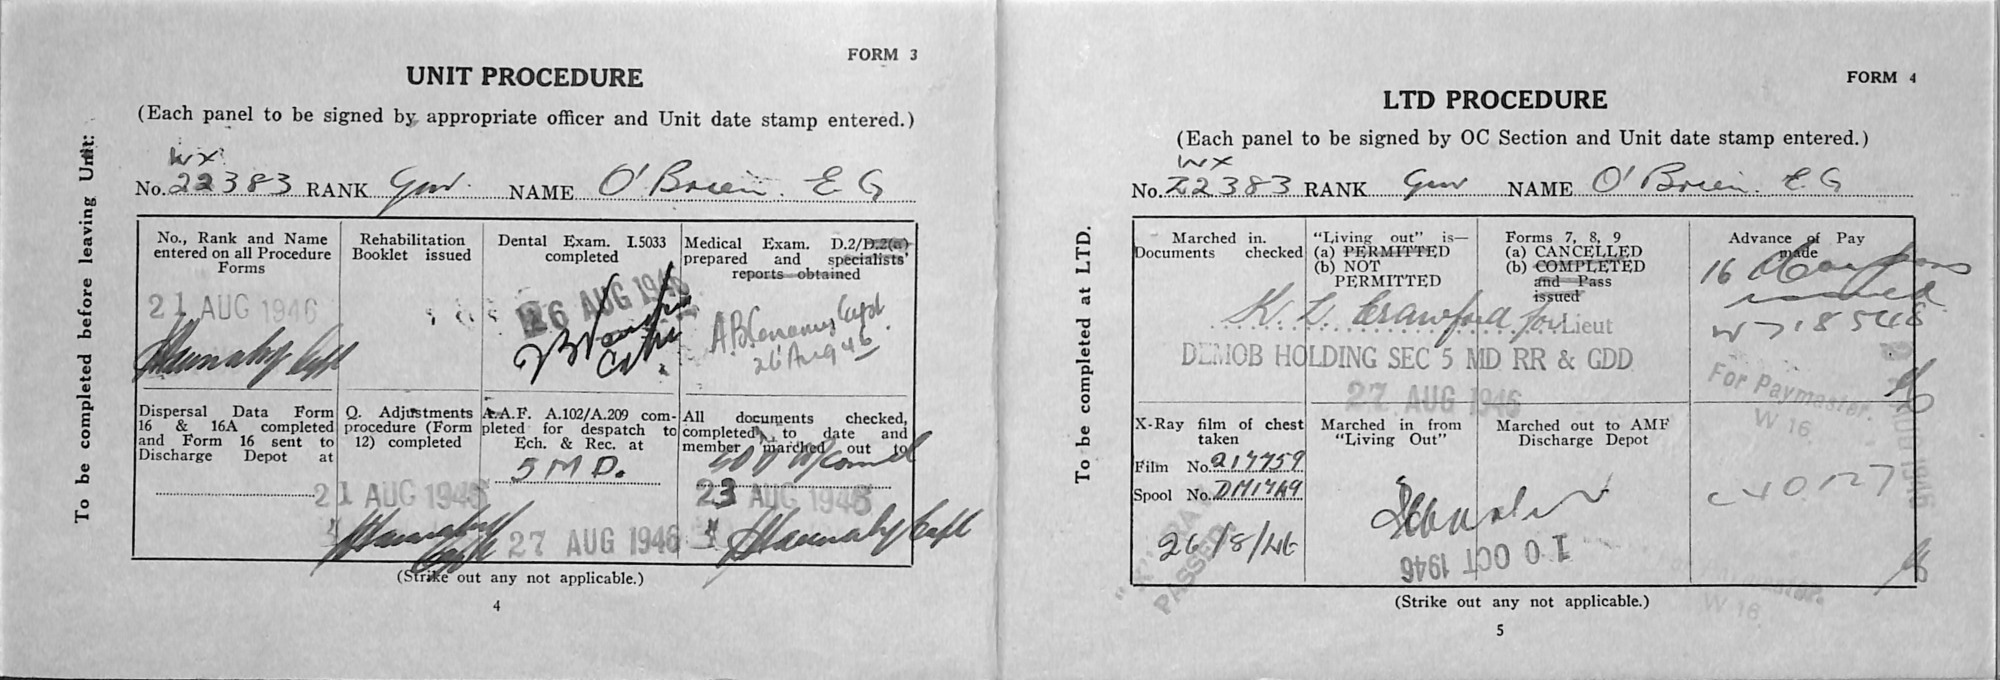 FORM 3
UNIT PROCEDURE
(Each panel to be signed by appropriate officer and Unit date stamp entered.)
To be completed before leaving Unit:
WX
No. 22383 RANK Gnr. NAME O'Brien. E G
No., Rank and Name
entered on all Procedure
Forms
21 AUG 1946
Rehabilitation
Booklet issued
Dental Exam. I.5033
completed
26 AUG 1946
Medical Exam. D.2/D.2(a)
prepared and specialists'
reports obtained
Capt
26 Aug 46
Dispersal Data Form
16 & 16A completed
and Form 16 sent to
Discharge Depot at
Q. Adjustments
procedure (Form
12) completed
21 AUG 1946
A.A.F. A.102/A.209 com-
pleted for despatch to
Ech. & Rec. at
5 M D.
27 AUG 1946
All documents checked,
completed to date and
member marched out to
23 AUG 1946
Capt
(Strike out any not applicable.)
4
FORM 4
LTD PROCEDURE
(Each panel to be signed by OC Section and Unit date stamp entered.)
To be completed at LTD.
WX
No. 22383 RANK Gnr NAME O'Brien. E G
Marched in.
Documents checked
"Living out" is—
(a) PERMITTED
(b) NOT
PERMITTED
Forms 7, 8, 9
(a) CANCELLED
(b) COMPLETED
and Pass
issued
Advance of Pay
made
16 Coupons
issued
W718548
K. L. Crawford for Lieut
DEMOB HOLDING SEC 5 MD RR & GDD
27 AUG 1946
For Paymaster.
W 16
X-Ray film of chest
taken
Film No. 217759
Spool No. DM1749
26/8/46
"X" RAY
PASSED
Marched in from
"Living Out"
Marched out to AMF
Discharge Depot
10 OCT 1946
For Paymaster.
W 16
(Strike out any not applicable.)
5